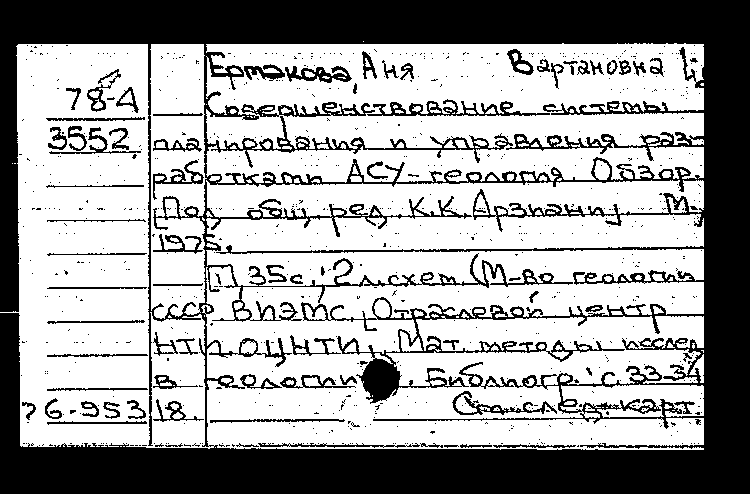 Ермакова, Аня Вартановна
78-4
Совершенствование системы
3552 планирования и управления раз-
работками АСУ-геология. Обзор.
[Под общ. ред. К.К. Арзиани]. М.,
1975.
[1], 35 с.; 2 л. схем. (М-во геологии
СССР. ВИЭМС. [Отраслевой центр
НТИ. ОЦНТИ]. Мат. методы исслед.
в геологии). Библиогр.: с. 33-34
76-953 18. См. след. карт.